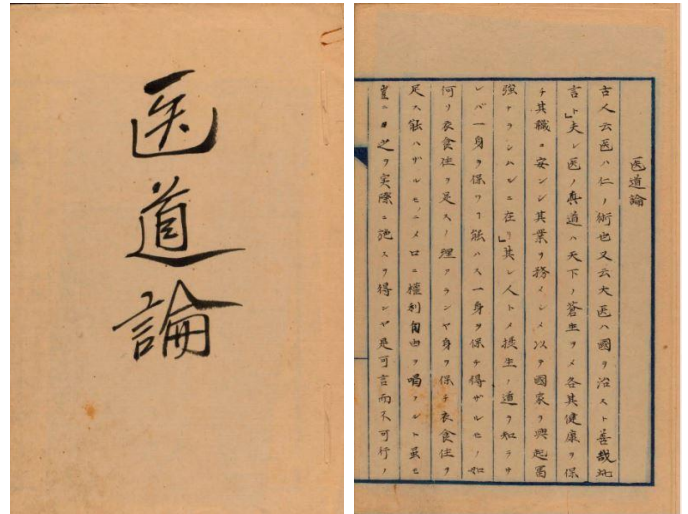 医道論
医道論
古人云医ハ仁ノ術也又云大医ハ國ヲ治スト善哉此
言ト」夫レ医ノ真道ハ天下ノ蒼生ヲメ各其健康ヲ保
チ其職ニ安ンシ其業ヲ務メシメ以テ國家ヲ興起富
強ナラシムルニ在リ」其レ人トメ摂生ノ道ヲ知ラサ
レバ一身ヲ保ツ了能ハス一身ヲ保チ得ザルモノ如
何ソ衣食住ヲ足スノ理アランヤ身ヲ保チ衣食住ヲ
足ス能ハザルモノニメ口ニ権利自由ヲ唱フルト虽モ
豈ニ之ヲ実際ニ施スヲ得ンヤ是可言而不可行ノ